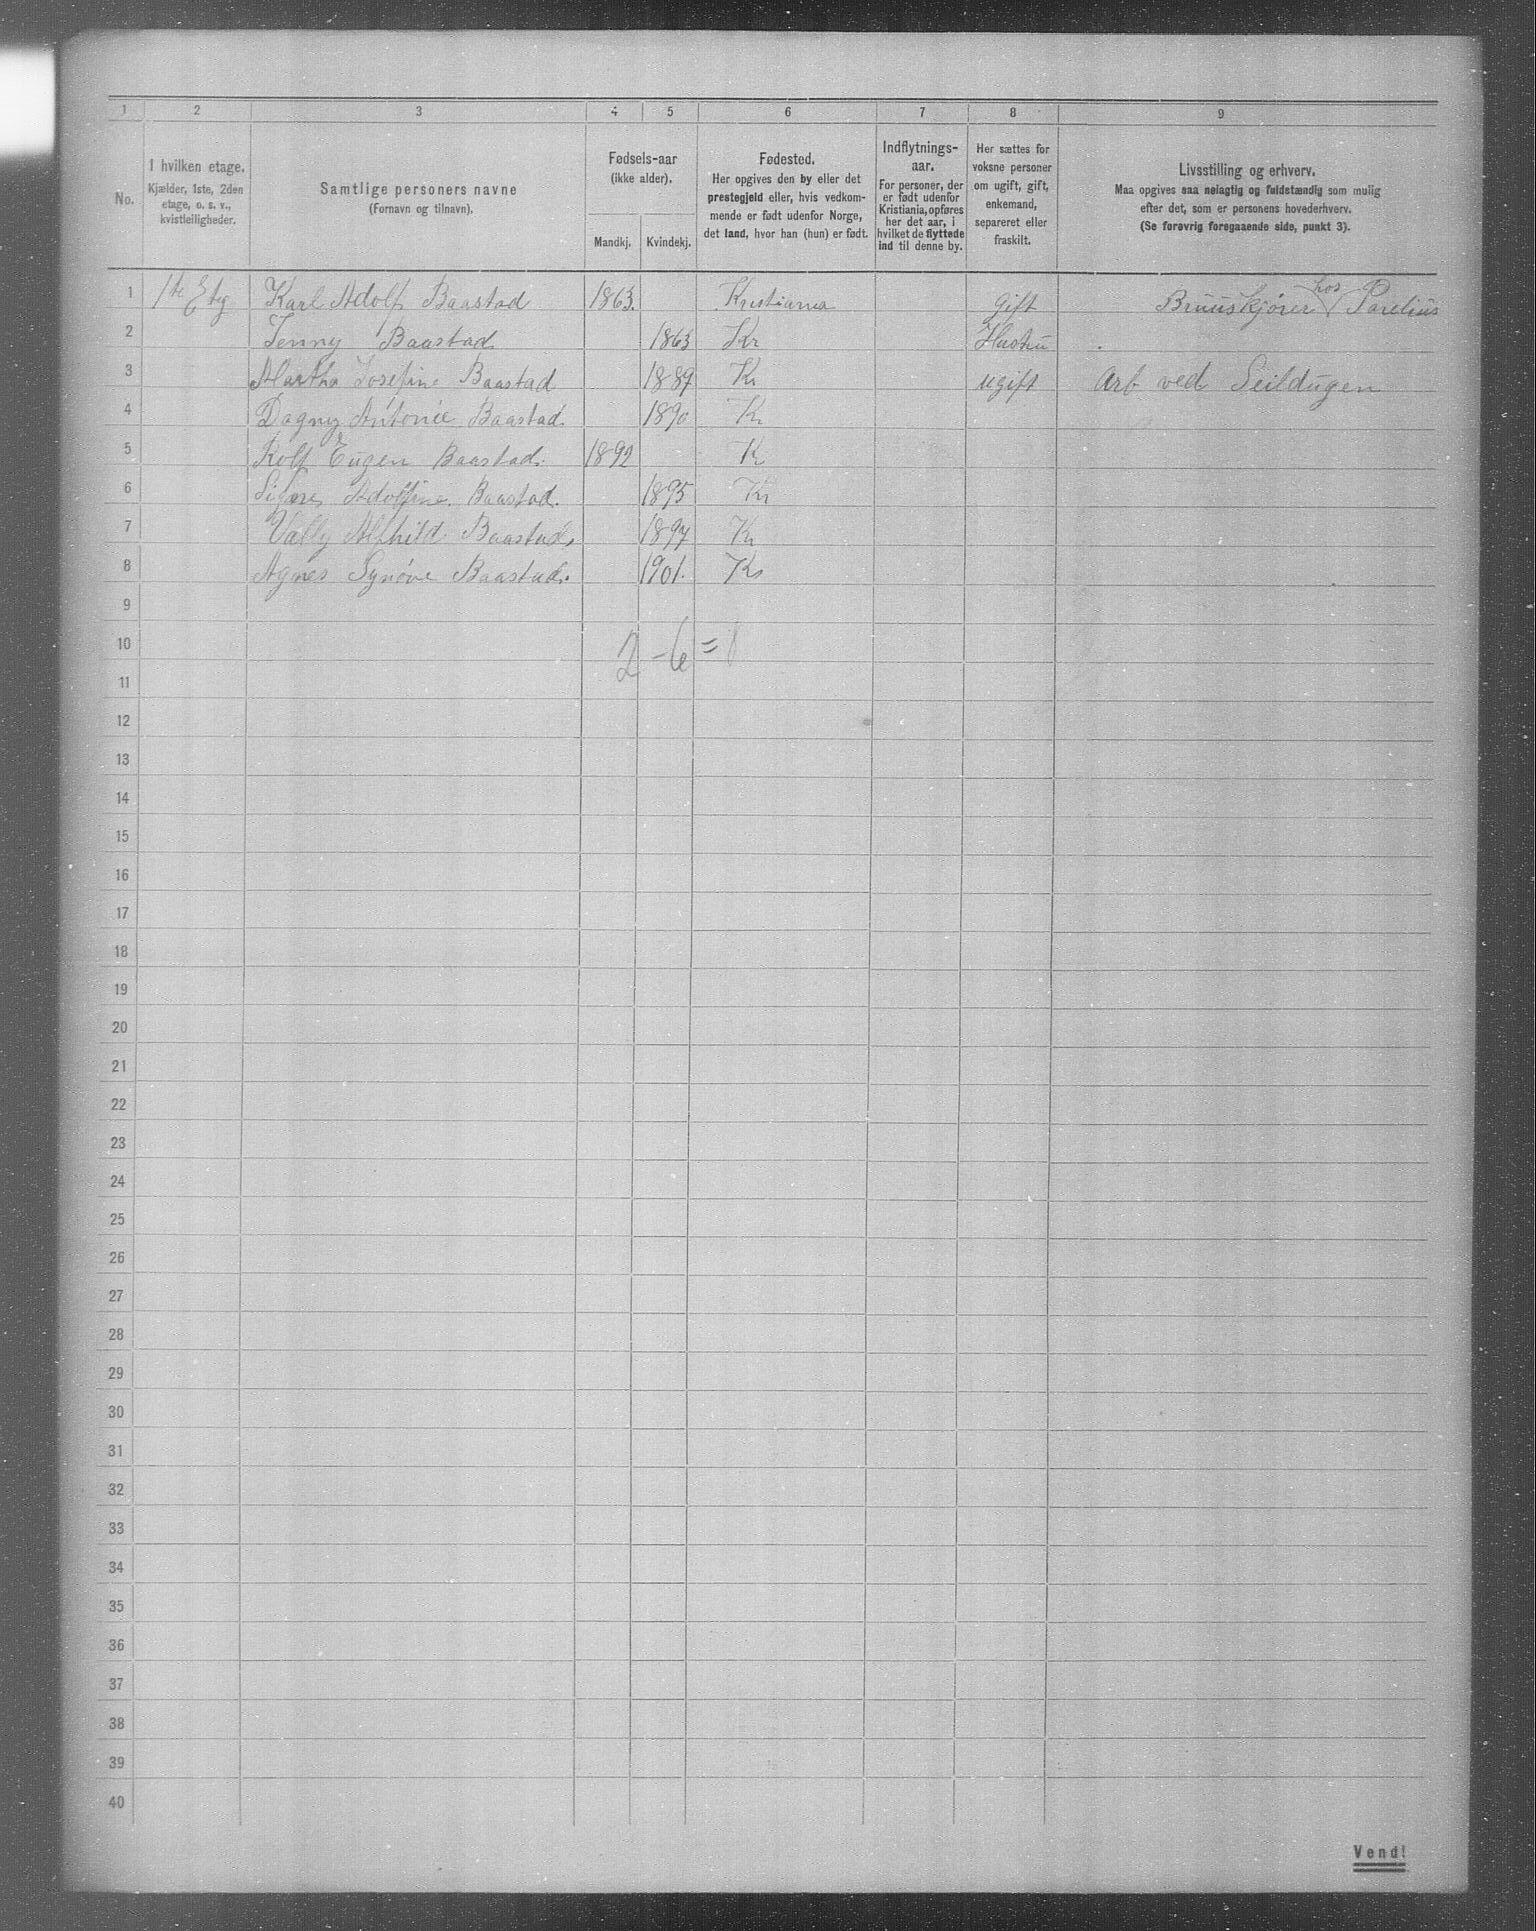 1 2 3 4 5 6 7 8 9
No.
I hvilken etage.
Kjælder, 1ste, 2den
etage, o. s. v.,
kvistleiligheder.
Samtlige personers navne
(Fornavn og tilnavn).
Fødsels-aar
(ikke alder).
Mandkj. Kvindekj.
Fødested.
Her opgives den by eller det
prestegjeld eller, hvis vedkom-
mende er født udenfor Norge,
det land, hvor han (hun) er født.
Indflytnings-
aar.
For personer, der
er født udenfor
Kristiania, opføres
her det aar, i
hvilket de flyttede
ind til denne by.
Her sættes for
voksne personer
om ugift, gift,
enkemand,
separeret eller
fraskilt.
Livsstilling og erhverv.
Maa opgives saa nøiagtig og fuldstændig som mulig
efter det, som er personens hovederhverv.
(Se forøvrig foregaaende side, punkt 3).
1 1ste Etg Karl Adolf Baastad 1863. Kristiania gift Bruuskjører hos Parelius
2 Jenny Baastad 1863 Kr Hustru
3 Martha Josefine Baastad 1889 Kr ugift Arb ved Seildugen
4 Dagny Antonie Baastad. 1890 Kr
5 Rolf Eugen Baastad. 1892 Kr
6 Signe Adolfine Baastad. 1895 Kr
7 Vally Alfhild Baastad. 1897 Kr
8 Agnes Synøve Baastad. 1901. Kr
9
10 2 - 6 = 8
11
12
13
14
15
16
17
18
19
20
21
22
23
24
25
26
27
28
29
30
31
32
33
34
35
36
37
38
39
40
Vend!